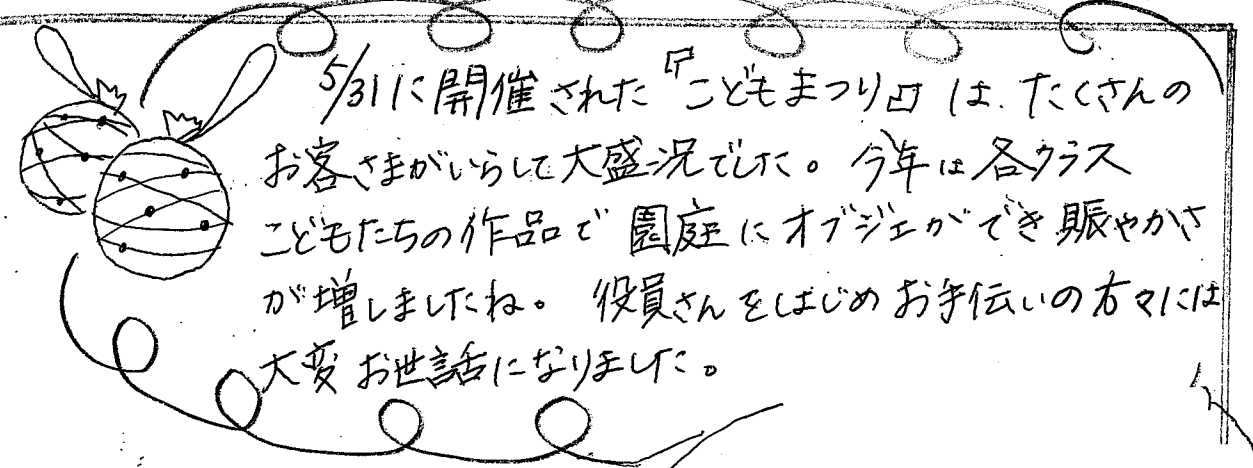 5/31に開催された『こどもまつり』は、たくさんの
お客さまがいらして大盛況でした。今年は各クラス
こどもたちの作品で園庭にオブジェができ賑やかさ
が増しましたね。役員さんをはじめお手伝いの方々には
大変お世話になりました。